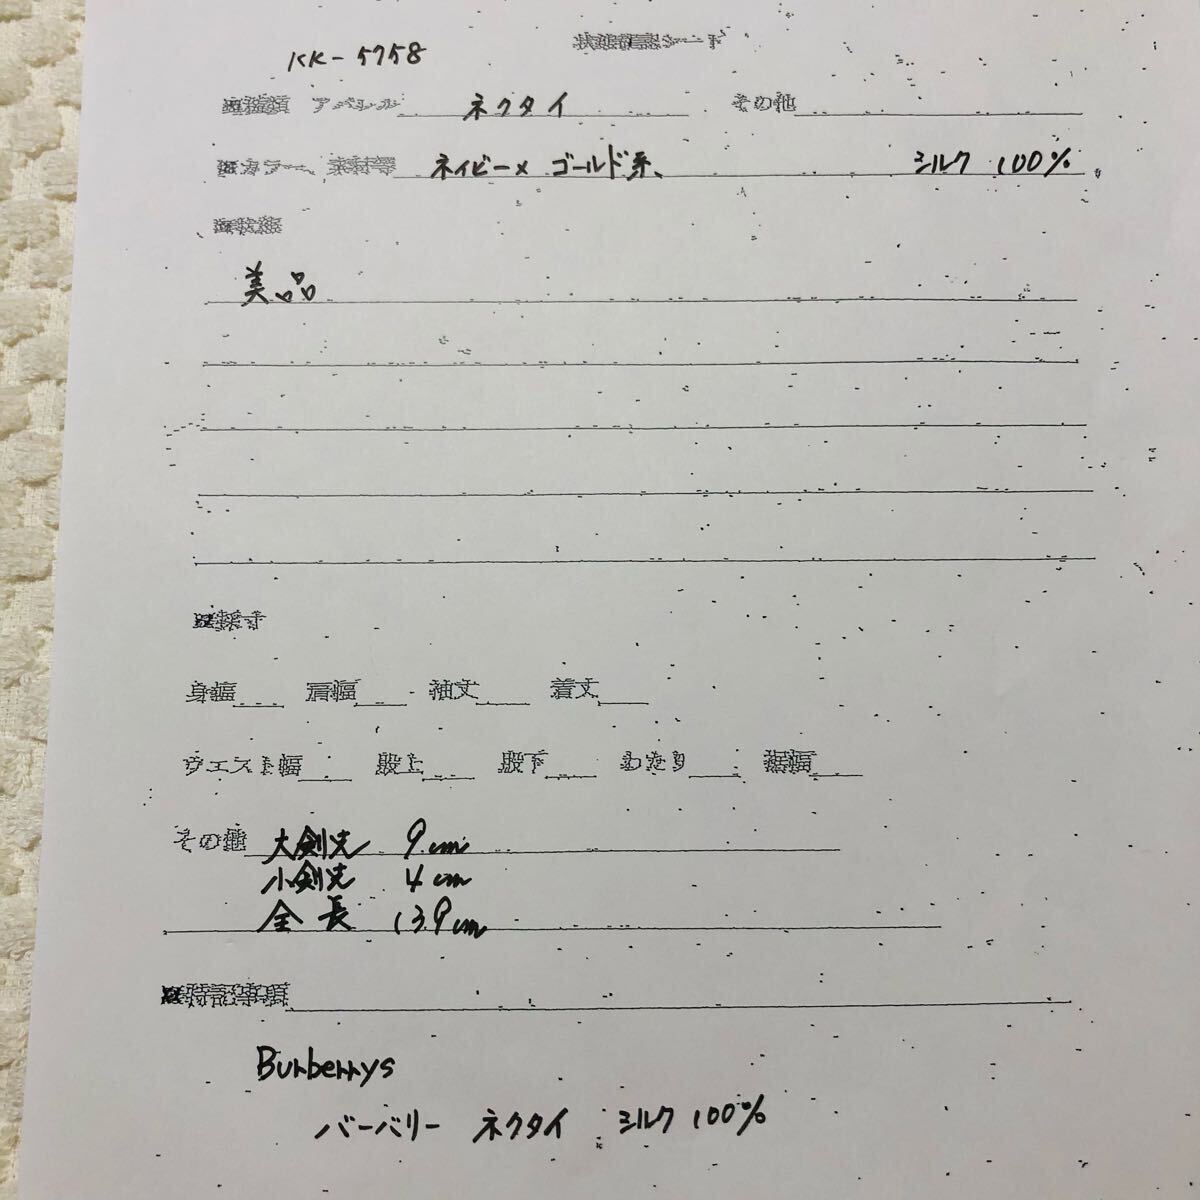 状態確認シート
KK-5758
■種類 アパレル ネクタイ その他
■カラー、素材等 ネイビー× ゴールド系、 シルク 100%
■状態
美品
■採寸
身幅 肩幅 袖丈 着丈
ウエスト幅 股上 股下 わたり 裾幅
その他 大剣先 9cm
小剣先 4cm
全長 139cm
■特記事項
Burberrys
バーバリー ネクタイ シルク 100%